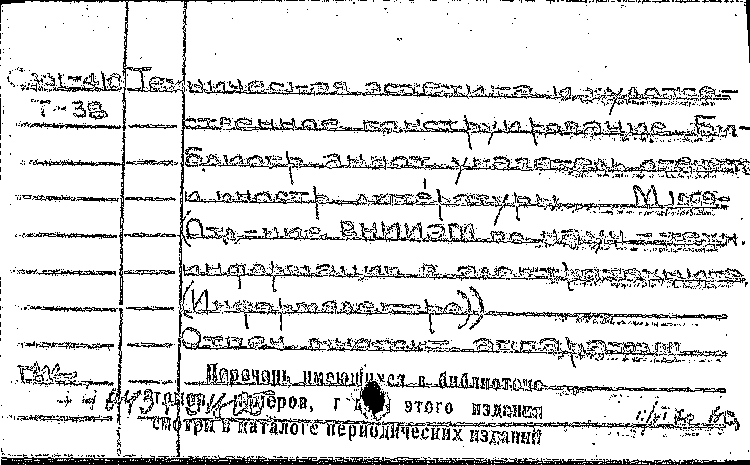 Техническая эстетика и художе-
Т-38
ственное конструирование. Би-
блиогр. аннот. указатель отечеств.
и иностр. литературы. М.
(Отд-ние ВНИИЭМ по научн.-техн.
информации в электротехнике.
(Информэлектро))
Отпеч. множит. аппаратом
Перечень имеющихся в библиотеке
номеров, г этого издания
смотри в каталоге периодических изданий